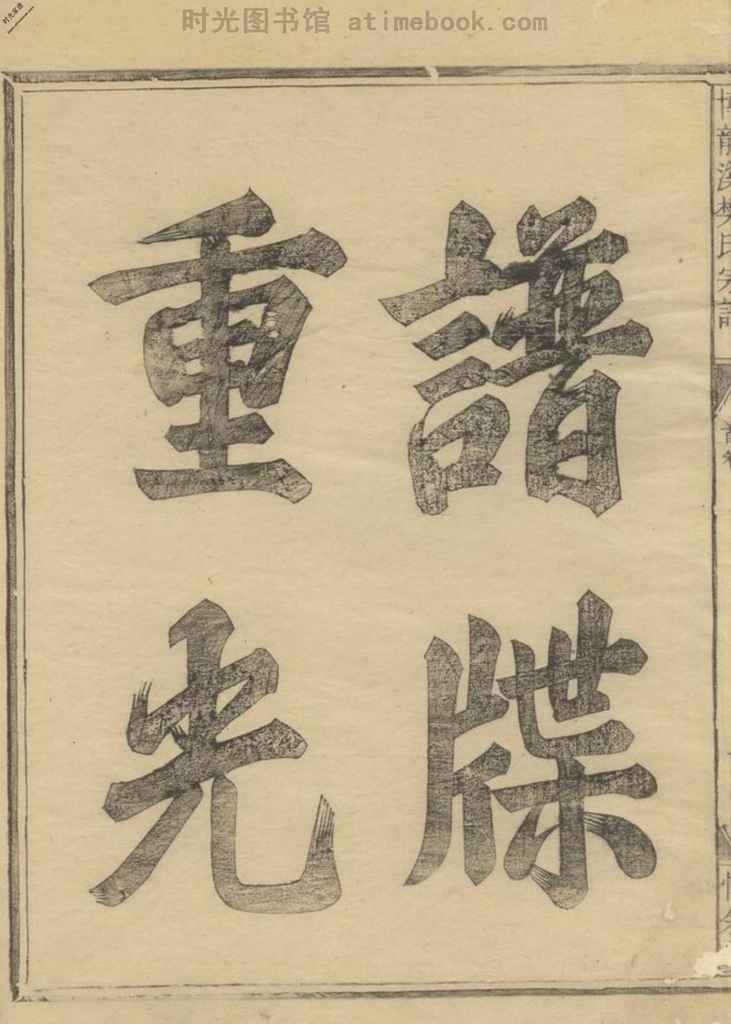 时光图书馆 atimebook.com
譜牒
重光
龍溪樊氏宗譜
首卷